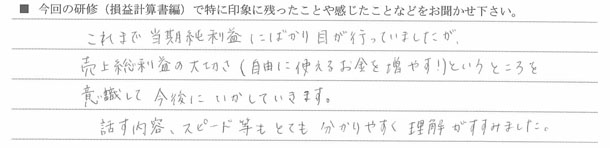 ■ 今回の研修（損益計算書編）で特に印象に残ったことや感じたことなどをお聞かせ下さい。
これまで当期純利益にばかり目が行っていましたが、
売上総利益の大切さ（自由に使えるお金を増やす！）というところを
意識して今後にいかしていきます。
話す内容、スピード等もとても分かりやすく理解がすすみました。